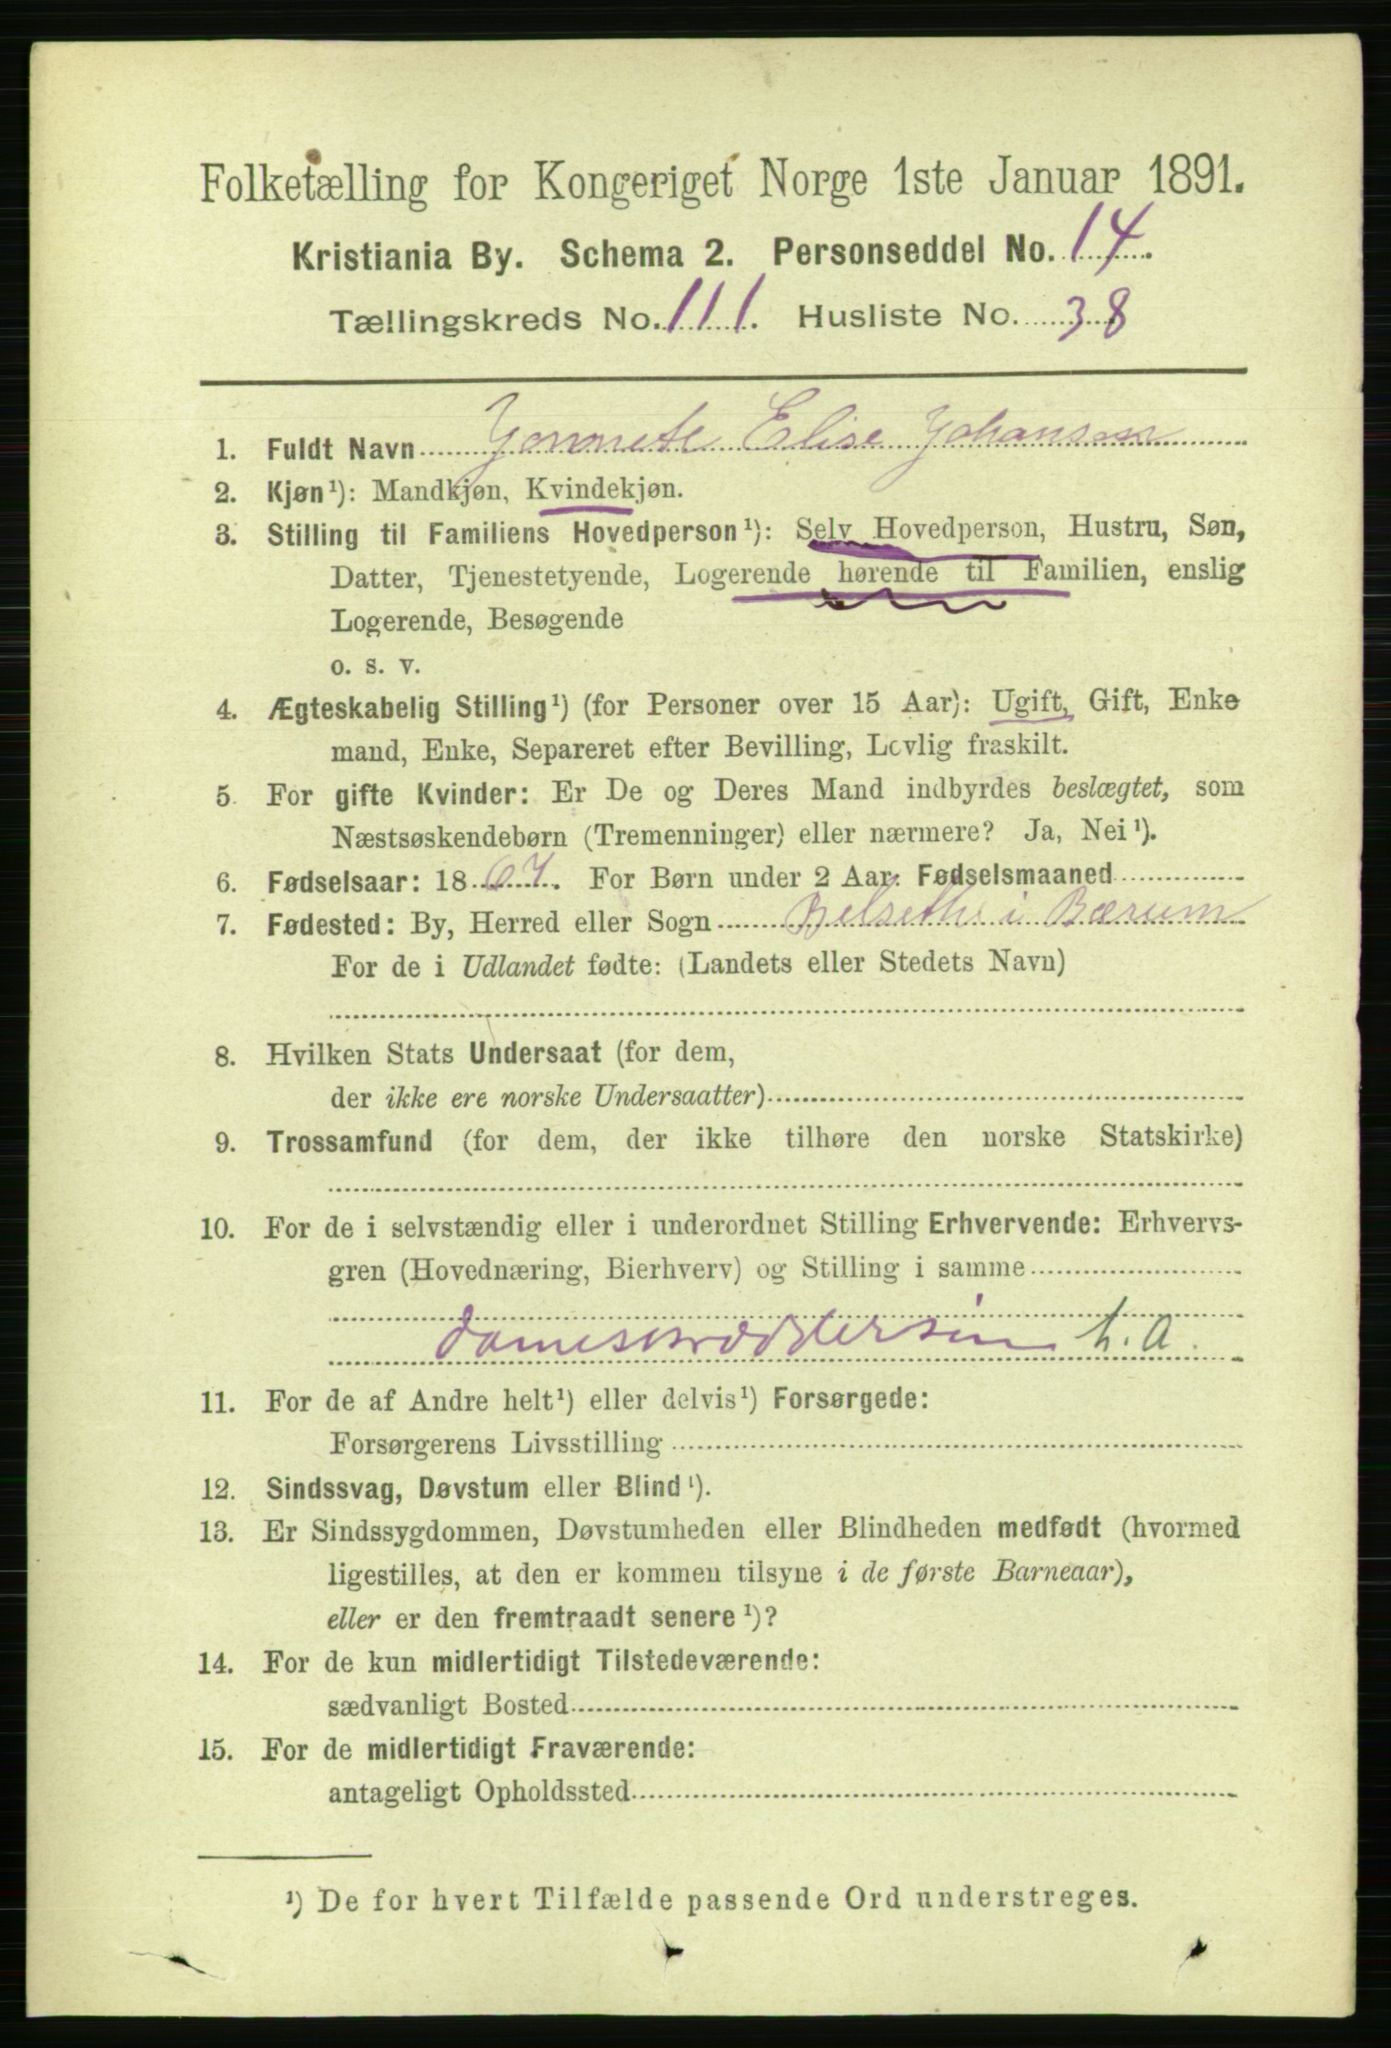 Folketælling for Kongeriget Norge 1ste Januar 1891.
Kristiania By. Schema 2. Personseddel No. 14.
Tællingskreds No. 111. Husliste No. 38
1. Fuldt Navn Elise Johansen
2. Kjøn¹): Mandkjøn, Kvindekjøn.
3. Stilling til Familiens Hovedperson¹): Selv Hovedperson, Hustru, Søn,
Datter, Tjenestetyende, Logerende hørende til Familien, enslig
Logerende, Besøgende
o. s. v.
4. Ægteskabelig Stilling¹) (for Personer over 15 Aar): Ugift, Gift, Enke
mand, Enke, Separeret efter Bevilling, Lovlig fraskilt.
5. For gifte Kvinder: Er De og Deres Mand indbyrdes beslægtet, som
Næstsøskendebørn (Tremenninger) eller nærmere? Ja, Nei¹).
6. Fødselsaar: 1867. For Børn under 2 Aar: Fødselsmaaned
7. Fødested: By, Herred eller Sogn i Bærum
For de i Udlandet fødte: (Landets eller Stedets Navn)
8. Hvilken Stats Undersaat (for dem,
der ikke ere norske Undersaatter)
9. Trossamfund (for dem, der ikke tilhøre den norske Statskirke)
10. For de i selvstændig eller i underordnet Stilling Erhvervende: Erhvervs-
gren (Hovednæring, Bierhverv) og Stilling i samme
h. a.
11. For de af Andre helt¹) eller delvis¹) Forsørgede:
Forsørgerens Livsstilling
12. Sindssvag, Døvstum eller Blind¹).
13. Er Sindssygdommen, Døvstumheden eller Blindheden medfødt (hvormed
ligestilles, at den er kommen tilsyne i de første Barneaar),
eller er den fremtraadt senere¹)?
14. For de kun midlertidigt Tilstedeværende:
sædvanligt Bosted
15. For de midlertidigt Fraværende:
antageligt Opholdssted
¹) De for hvert Tilfælde passende Ord understreges.